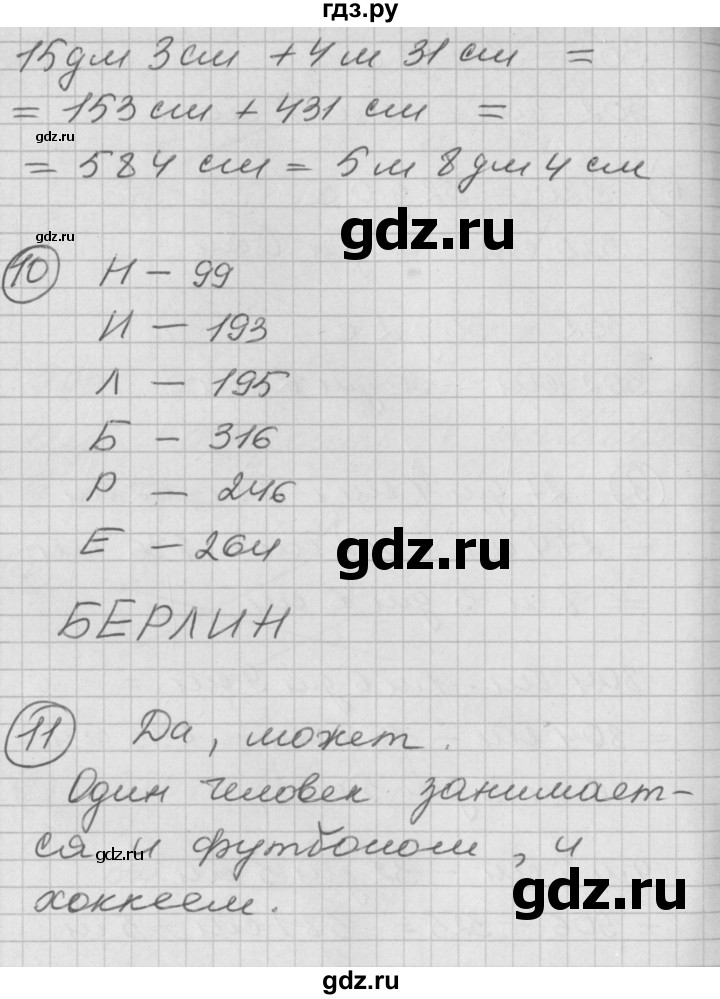 гдз.ру
15дм 3см + 4м 31см =
= 153см + 431 см =
gdz.ru
= 584 см = 5м 8дм 4см
gdz.ru
gdz.ru
10 Н – 99
И – 193
Л – 195
Б – 316
Р – 246
Е – 264
gdz.ru
БЕРЛИН
11 Да, может.
Один человек занимает-
ся и футболом, и
gdz.ru
gdz.ru
хоккеем.
gdz.ru